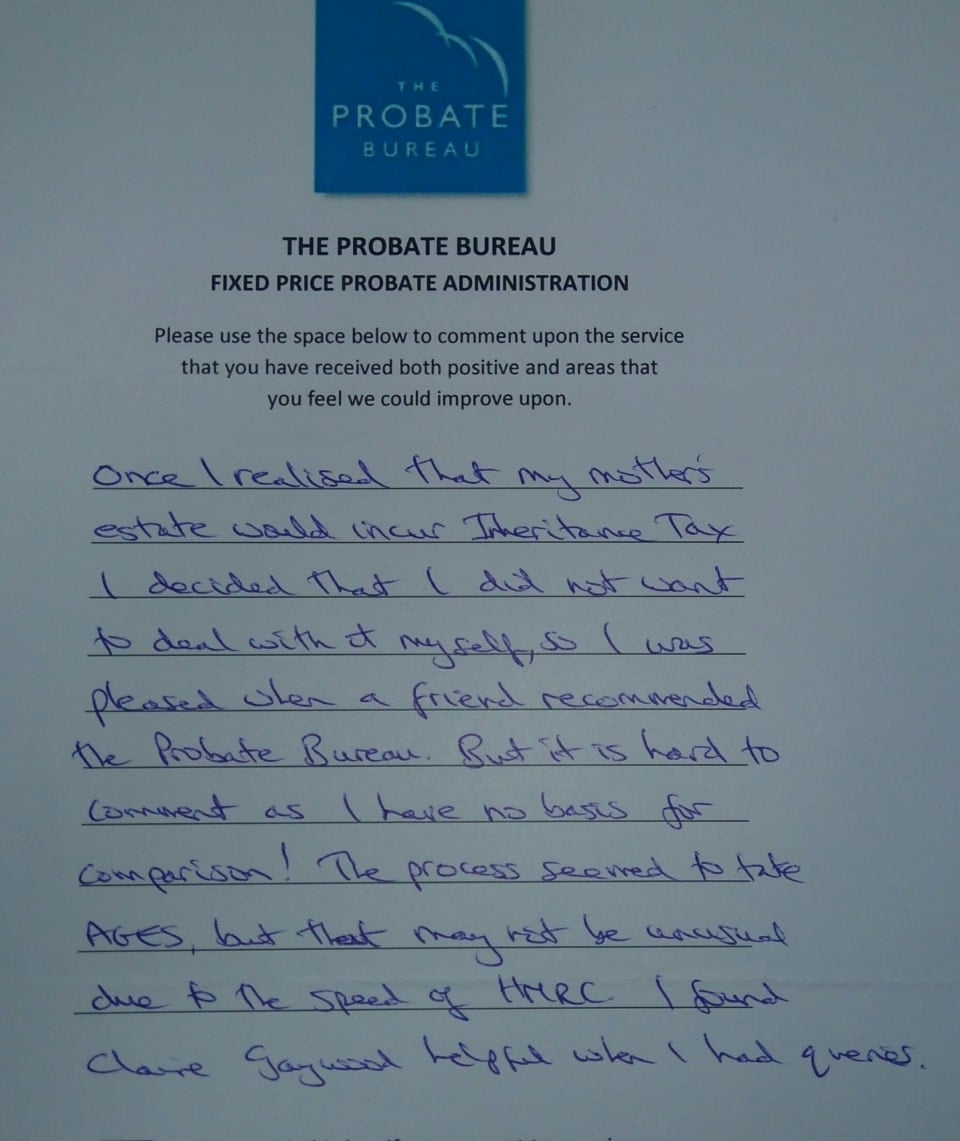 THE
PROBATE
BUREAU
THE PROBATE BUREAU
FIXED PRICE PROBATE ADMINISTRATION
Please use the space below to comment upon the service
that you have received both positive and areas that
you feel we could improve upon.
Once I realised that my mother's
estate would incur Inheritance Tax
I decided that I did not want
to deal with it myself, so I was
pleased when a friend recommended
the Probate Bureau. But it is hard to
comment as I have no basis for
comparison! The process seemed to take
AGES, but that may not be unusual
due to the speed of HMRC I found
Claire Gaywood helpful when I had queries.